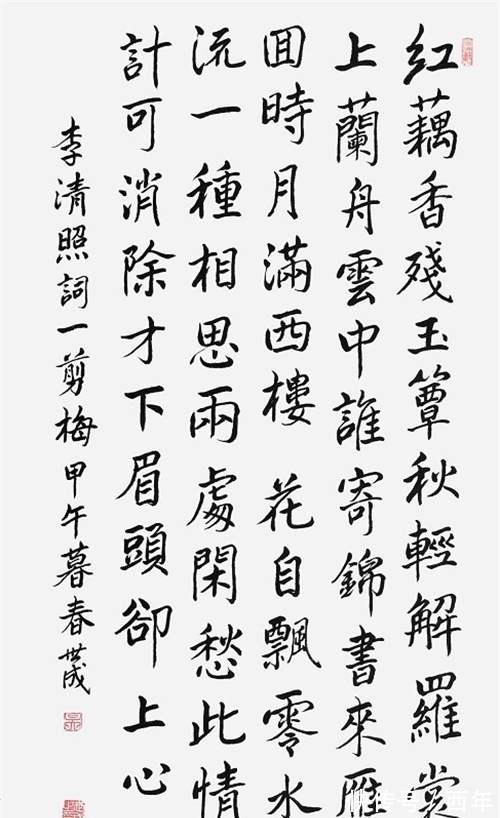 紅藕香殘玉簟秋輕解羅裳
上蘭舟雲中誰寄錦書來雁
囬時月滿西樓 花自飄零水
流一種相思兩處閑愁此情
計可消除才下眉頭卻上心
李清照詞一剪梅甲午暮春世成
快传号/西年